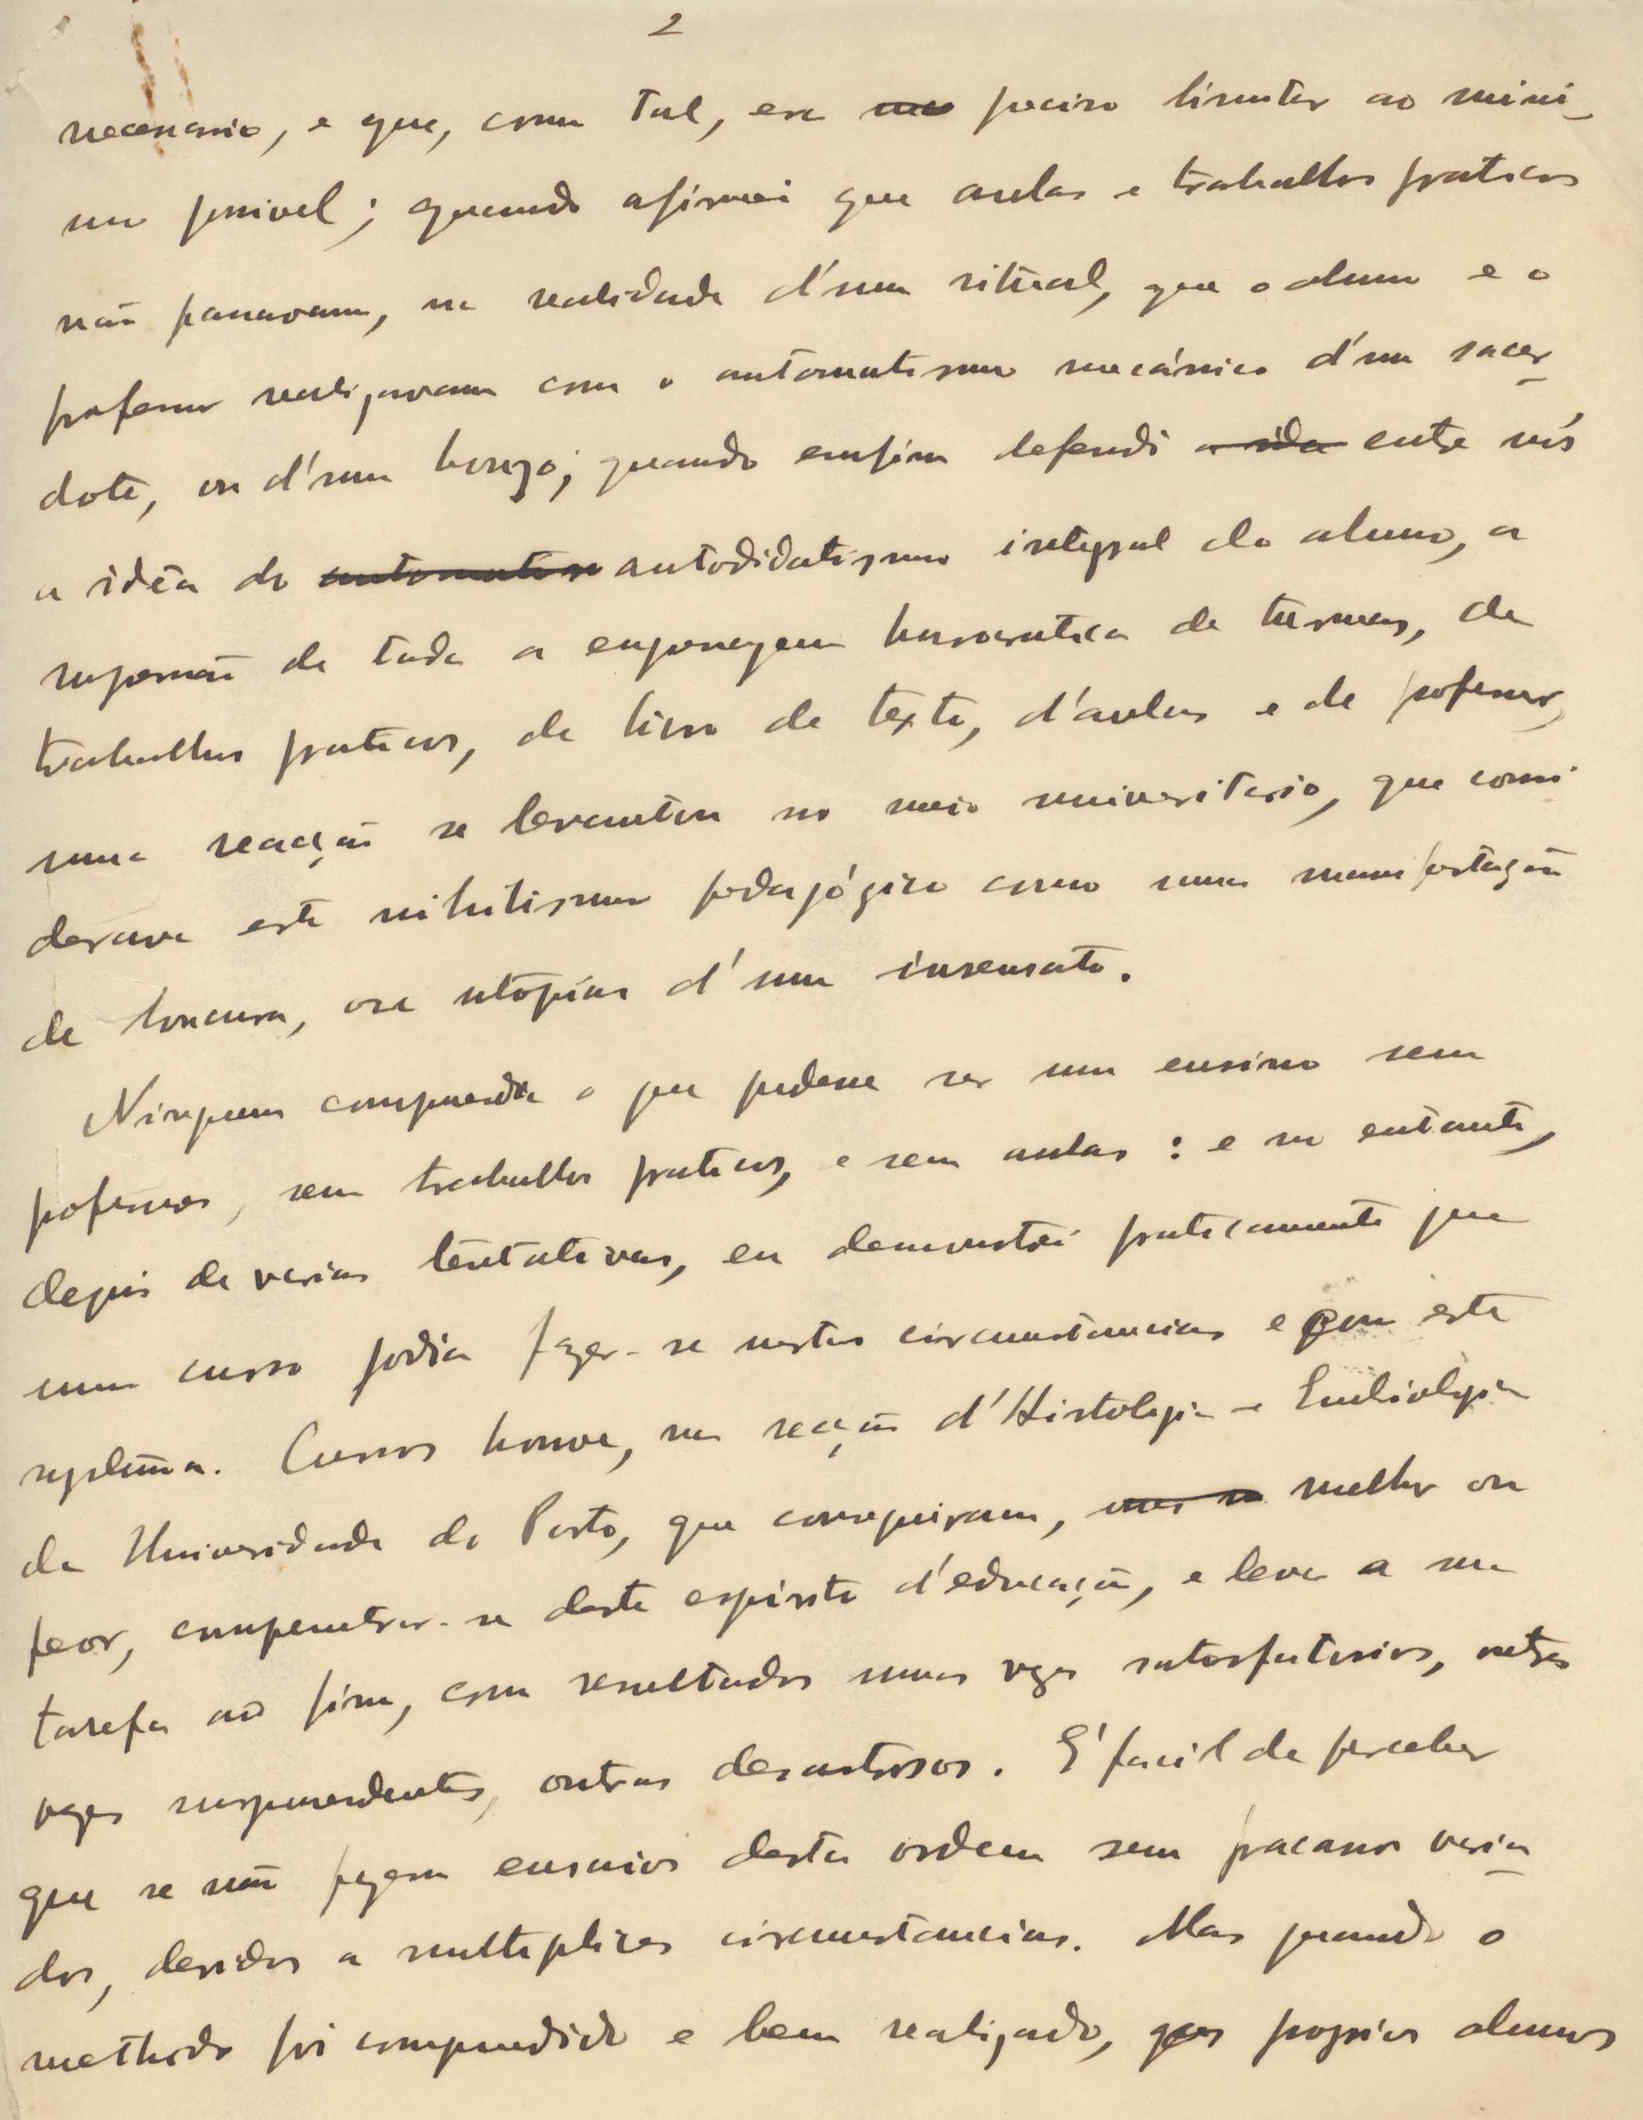 2
necessario, e que, como tal, era preciso limitar ao mini-
mo possivel; quando afirmei que aulas e trabalhos praticos
não passavam, na realidade d'um ritual, que o aluno e o
professor realizavam com o automatismo mecánico d'um sacer-
dote, ou d'um bonzo; quando emfim defendi a ida entre nós
a idêa do automatism autodidatismo integral do aluno, a
supressão de toda a engrenagem burocratica de turmas, de
trabalhos praticos, de livro de texto, d'aulas e de professor,
uma reacção se levantou no meio universitario, que consi
derava este nihilismo pedagógico como uma manifestação
de loucura, ou utopias d'um insensato.
Ninguem comprendia o que pudesse ser um ensino sem
professores, sem trabalhos praticos, e sem aulas: e no entanto,
depois de varias tentativas, eu demonstrei praticamente que
um curso podia fazer-se nestas circumstancias e com este
systema. Cursos houve, na secção d'Histologia e Embriologia
da Universidade do Porto, que conseguiram, melhor ou
peor, compenetrar-se deste espirito d'educação, e levar a sua
tarefa ao fim, com resultados umas vezes satisfatorios, outras
vezes surprendentes, outras desastrosos. E' facil de perceber
que se não fazem ensaios desta ordem sem fracassos varia-
dos, devidos a multiplices circumstancias. Mas quando o
methodo foi comprendido e bem realizado, os proprios alunos